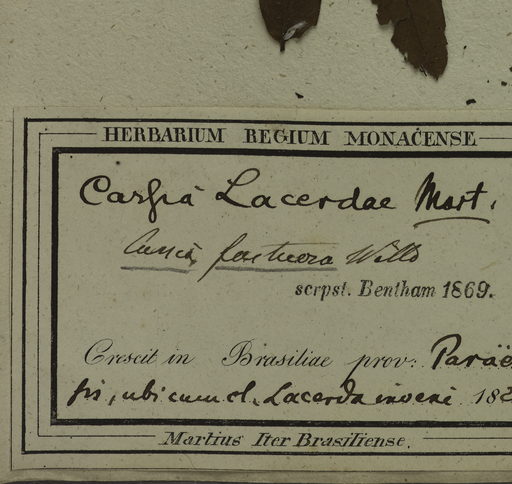 HERBARIUM REGIUM MONACENSE
Cassia Lacerdae Mart.
Cassia fastuosa Willd
scrpst. Bentham 1869.
Crescit in Brasiliae prov: Paraën
sis, ubi cum cl. Lacerda inveni 182
Martius Iter Brasiliense.